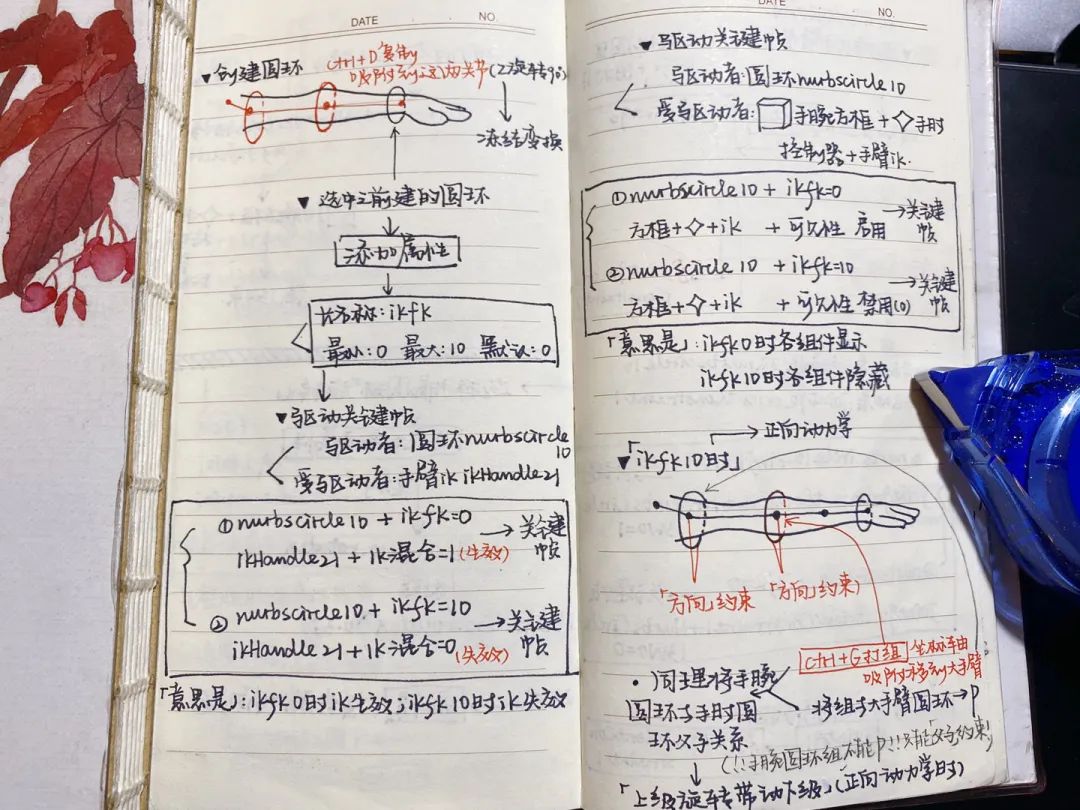 DATE NO.
▼创建圆环 Ctrl+D复制
吸附到这两关节(Z旋转90°)
冻结变换
▼选中之前建的圆环
添加属性
长名称:ikfk
最小:0 最大:10 默认:0
▼驱动关键帧
驱动者:圆环nurbscircle10
受驱动者:手臂ik ikHandle21
①nurbscircle10 + ikfk=0 →关键帧
ikHandle21 + ik混合=1(生效)
②nurbscircle10 + ikfk=10 →关键帧
ikHandle21 + ik混合=0(失效)
「意思是」:ikfk0时ik生效;ikfk10时ik失效
DATE NO.
▼驱动关键帧
驱动者:圆环nurbscircle10
受驱动者:手腕方框+◇手肘
控制器+手臂ik.
①nurbscircle10 + ikfk=0 →关键帧
方框+◇+ik + 可见性 启用
②nurbscircle10 + ikfk=10 →关键帧
方框+◇+ik + 可见性 禁用(0)
「意思是」:ikfk0时各组件显示
ikfk10时各组件隐藏
→正向动力学
▼「ikfk10时」
「方向」约束 「方向」约束)
Ctrl+G打组 坐标轴由
吸附移到大手臂
·同理将手腕
圆环与手肘圆
环父子关系
将组与大手臂圆环→P
(!!手腕圆环组不能P!!只能「父子约束」
「上级旋转带动下级」(正向动力学时)